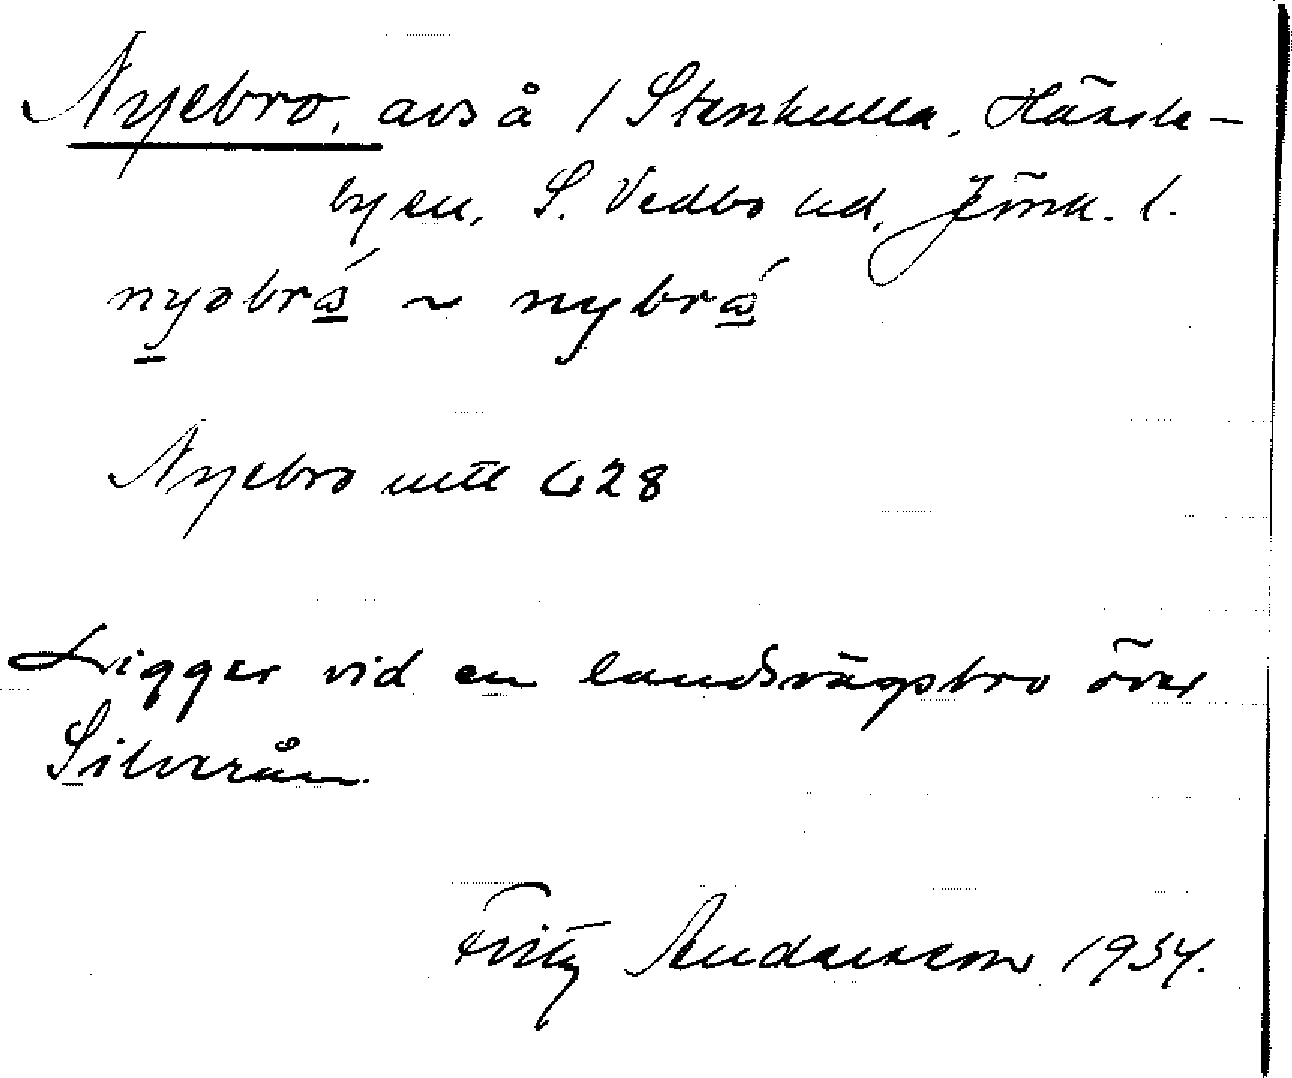 Nyebro, avs å 1 Stenkulla, Hässle-
by sn, S. Vedbo hd, Jönk. l.
nyəbrå ~ nybrå
Nyebro
Ligger vid en landsvägsbro över
Silverån.
Fritz Andersson 1934.